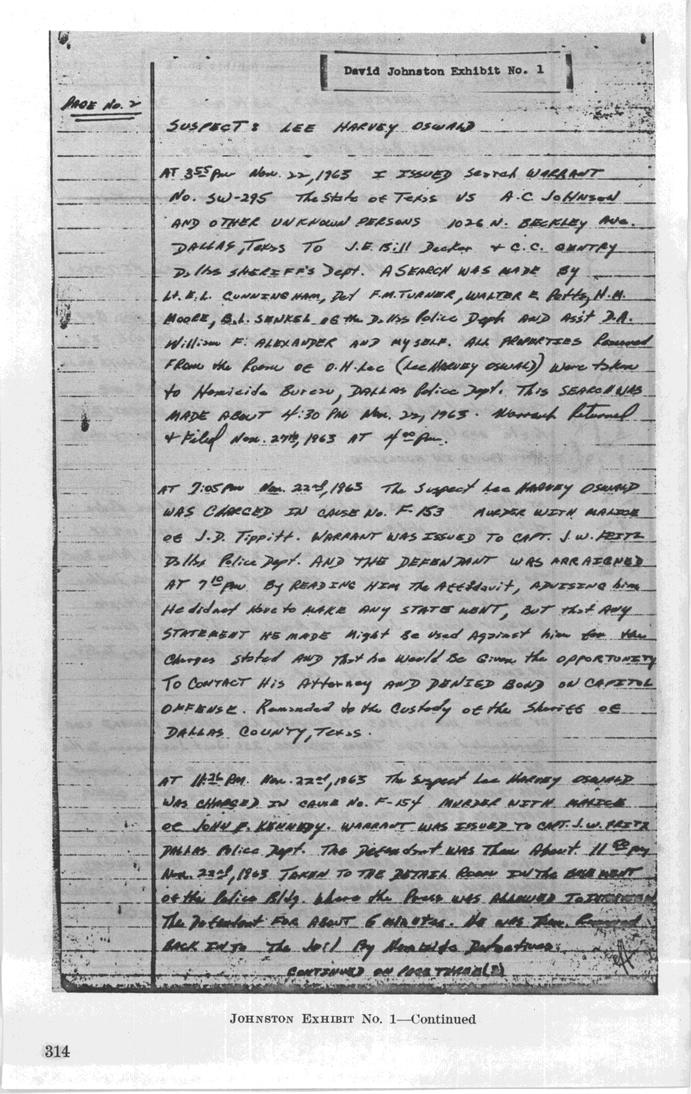 David Johnston Exhibit No. 1
PAGE No. 2
SUSPECT: LEE HARVEY OSWALD
AT 3:55 PM Nov. 22, 1963 I ISSUED Search WARRANT
No. SW-295 The State of Texas VS A.C JOHNSON
AND OTHER UNKNOWN PERSONS 1026 N. BECKLEY AVE.
DALLAS, Texas TO J.E. Bill Decker + C.C. GENTRY
Dallas SHERIFF'S Dept. A SEARCH WAS MADE BY
Lt. E.L. CUNNINGHAM, Det F.M. TURNER, WALTER E. Potts, H.M.
MOORE, B.L. SENKEL of the Dallas Police Dept AND Ass't D.A.
William F. ALEXANDER AND MYSELF. ALL PROPERTIES Removed
FROM the Room OF O.H. Lee (Lee HARVEY OSWALD) Were taken
to Homicide Bureau, DALLAS Police Dept. This SEARCH WAS
MADE ABOUT 4:30 PM Nov. 22, 1963. Warrant Returned
& Filed Nov. 27th, 1963 AT 4:00 Pm.
AT 7:05 PM Nov. 22nd, 1963 The Suspect Lee HARVEY OSWALD
WAS CHARGED IN CAUSE No. F-153 MURDER WITH MALICE
OF J.D. Tippitt. WARRANT WAS ISSUED TO CAPT. J.W. FRITZ
Dallas Police Dept. AND THE DEFENDANT WAS ARRAIGNED
AT 7:10 PM By READING HIM The Affidavit, ADVISING him
He did not have to MAKE ANY STATEMENT, BUT that ANY
STATEMENT HE MADE Might Be Used Against him for the
Charges Stated AND That he Would Be Given the OPPORTUNITY
TO CONTACT His Attorney AND DENIED BOND ON CAPITOL
OFFENSE. Remanded to the Custody of the Sheriff OF
DALLAS COUNTY, Texas.
AT 11:26 PM. Nov. 22nd, 1963 The Suspect Lee HARVEY OSWALD
WAS CHARGED IN CAUSE No. F-154 MURDER WITH MALICE
OF JOHN F. KENNEDY. WARRANT WAS ISSUED TO CAPT. J.W. FRITZ
DALLAS Police Dept. The Defendant WAS Then About 11 PM
Nov. 22nd, 1963 TAKEN TO THE DETAIL ROOM IN the BASEMENT
of the Police Bldg. Where the Press WAS ALLOWED TO
The Defendant FOR ABOUT 6 minutes. He WAS Then Removed
BACK INTO The Jail By Homicide Detectives.
CONTINUED ON PAGE THREE(3)
JOHNSTON EXHIBIT No. 1—Continued
314